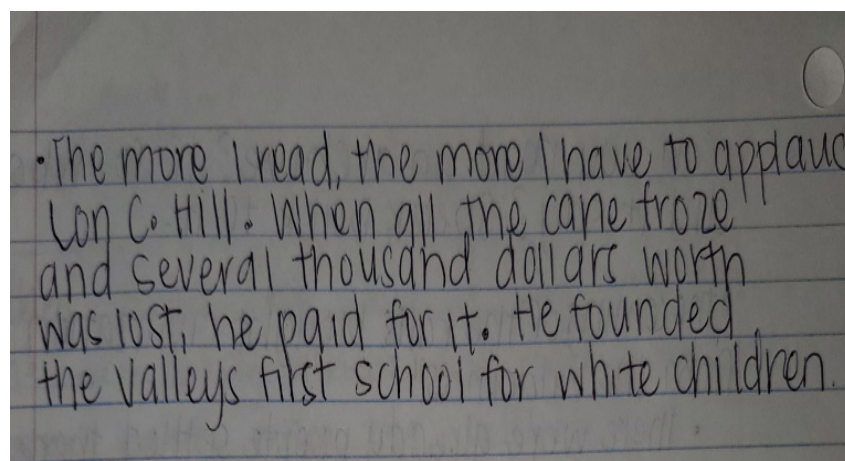 ·The more I read, the more I have to applaud
Lon C. Hill. When all the cane froze
and several thousand dollars worth
was lost, he paid for it. He founded
the valleys first school for white children.